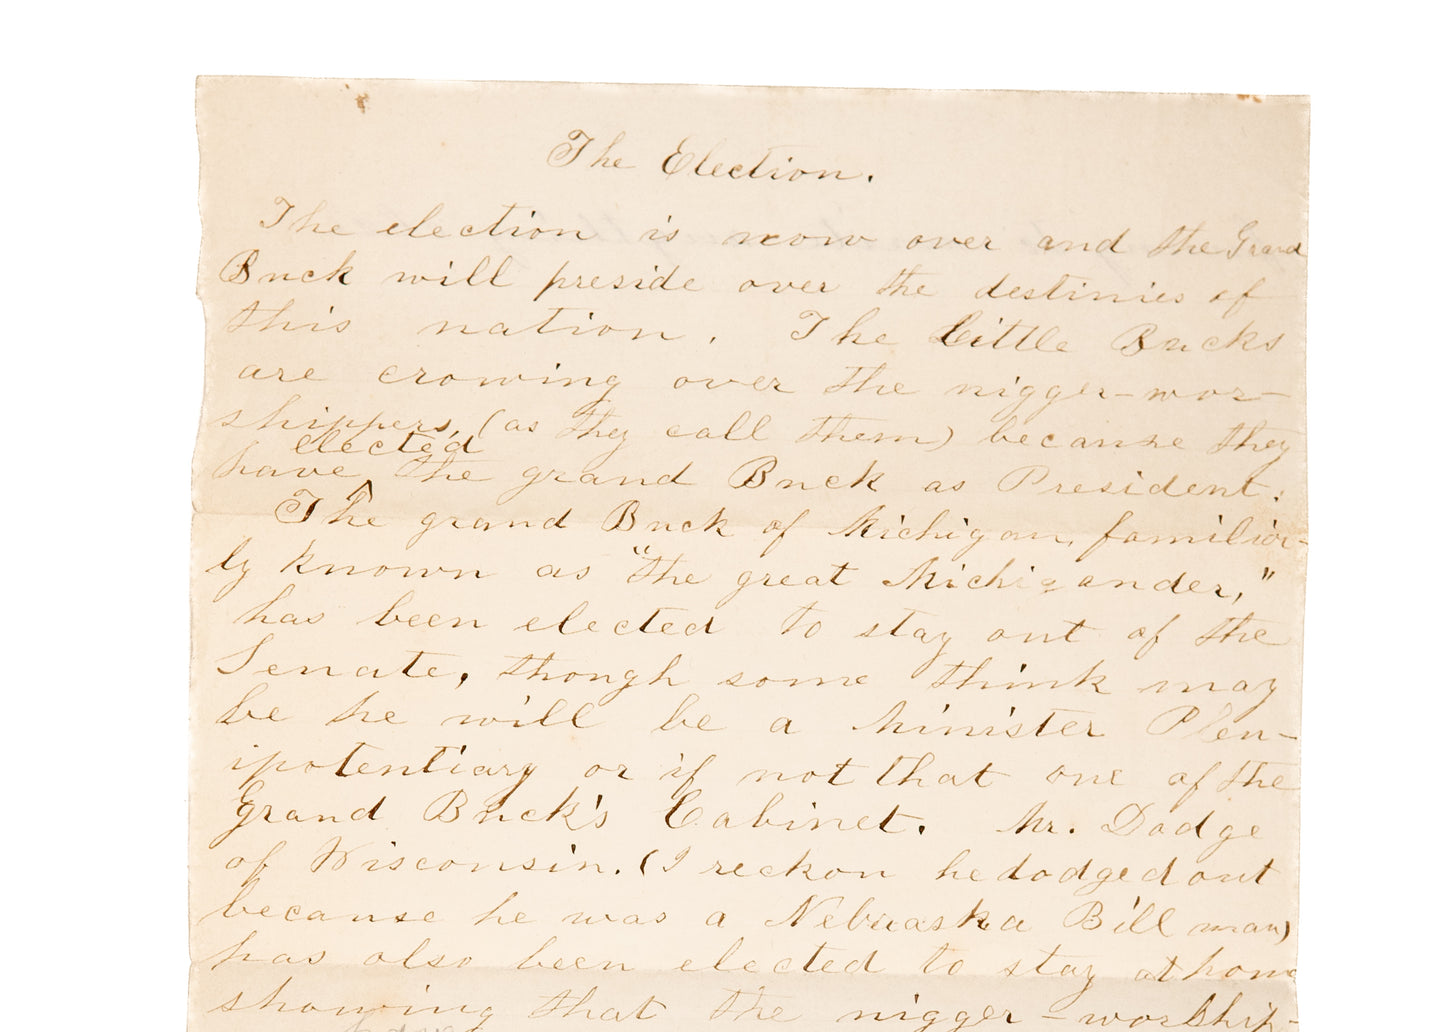 The Election.
The election is now over and the Grand
Buck will preside over the destinies of
this nation. The Little Bucks
are crowing over the nigger-wor-
shippers, (as they call them) because they
elected
have ^ the grand Buck as President.
The grand Buck of Michigan, familiar-
ly known as "the great Michigander,"
has been elected to stay out of the
Senate, though some think may
be he will be a Minister Plen-
ipotentiary or if not that one of the
Grand Buck's Cabinet. Mr. Dodge
of Wisconsin. (I reckon he dodged out
because he was a Nebraska Bill man)
has also been elected to stay at home
showing that the nigger-worship-